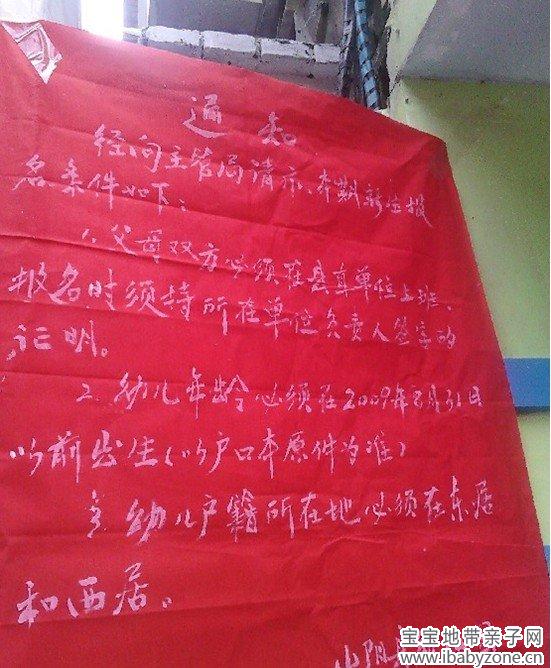 通知
经向主管局请示,本期新生报
名条件如下:
1.父母双方必须在县直单位上班、
报名时须持所在单位负责人签字的
证明。
2.幼儿年龄必须在2009年8月31日
以前出生(以户口本原件为准)
3.幼儿户籍所在地必须在东居
和西居。
山阳
宝宝地带亲子网
www.ibabyzone.cn